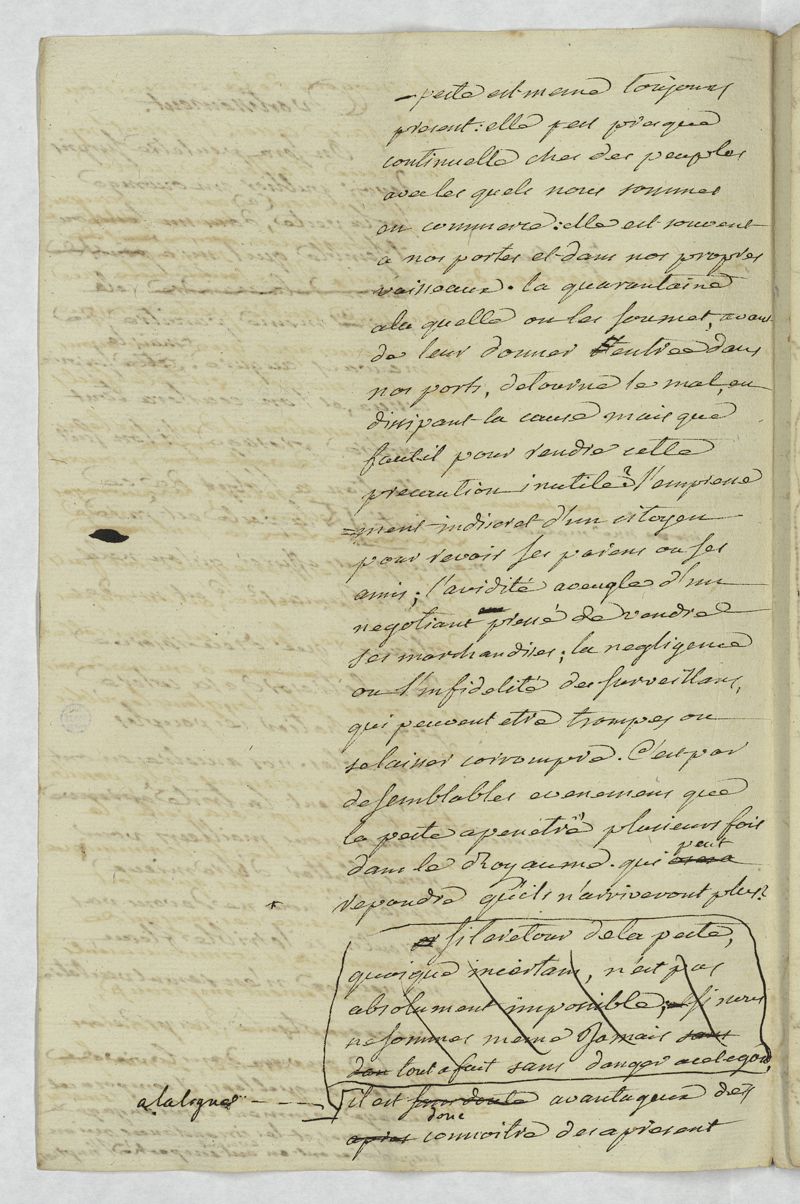 peste est meme toujours
present: elle est presque
continuelle ches des peuples
avec les quels nous sommes
en commerce: elle est souvent
a nos portes et dans nos propres
vaisseaux. la quarantaine
a la quelle on les soumet, avant
de leur donner l'entrée dans
nos ports, detourne le mal, en
dissipant la cause mais que
faut il pour rendre cette
precaution inutile? l'empresse
=ment indiscret d'un citoyen
pour revoir ses parens ou ses
amis; l'avidité aveugle d'un
negotiant pressé de vendre
ses marchandises; la negligence
ou l'infidelité des surveillans,
qui peuvent etre trompes ou
se laisser corrompre. C'est par
de semblables evenemens que
la peste a penétré plusieurs fois
dans le Royaume. qui peut
repondre qu'ils n'arriveront plus?
si le retour de la peste,
quoique incertain, n'est pas
absolument impossible; si nous
ne sommes meme jamais sans
dan tout a fait sans danger a cet egard,
a la ligne il est sans doute avantageux des
apres donc connoitre des a present